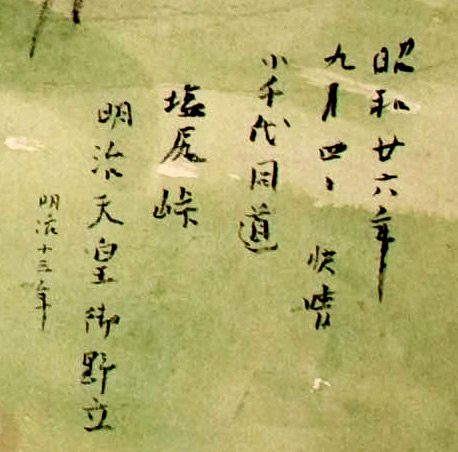 昭和廿六年
九月四日 快晴
小千代同道
塩尻峠
明治天皇御野立
明治十三年